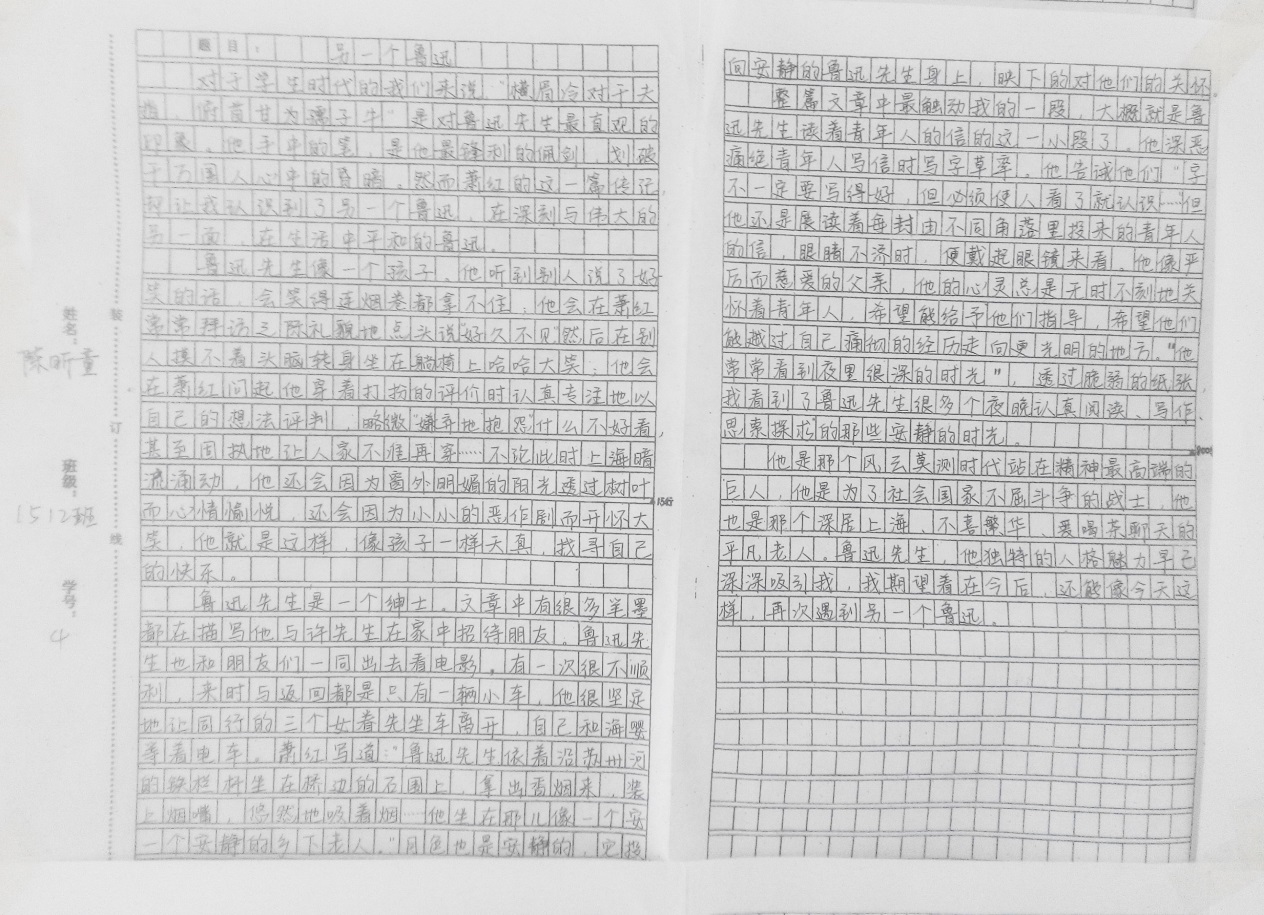 题目： 另一个鲁迅
对于学生时代的我们来说，"横眉冷对千夫
指，俯首甘为孺子牛"是对鲁迅先生最直观的
印象。他手中的笔，是他最锋利的佩剑，划破
千万国人心中的昏暗。然而萧红的这一篇传记，
却让我认识到了另一个鲁迅，在深刻与伟大的
另一面，在生活中平和的鲁迅。
鲁迅先生像一个孩子。他听到别人说了好
笑的话，会笑得连烟卷都拿不住；他会在萧红
常常拜访之际礼貌地点头说"好久不见"然后在别
人摸不着头脑转身坐在躺椅上哈哈大笑；他会
在萧红问起他穿着打扮的评价时认真专注地以
自己的想法评判，略微"嫌弃"地抱怨什么不好看，
甚至固执地让人家不准再穿……不论此时上海暗
流涌动，他还会因为窗外明媚的阳光透过树叶
而心情愉悦，还会因为小小的恶作剧而开怀大
笑，他就是这样，像孩子一样天真，找寻自己
的快乐。
鲁迅先生是一个绅士。文章中有很多笔墨
都在描写他与许先生在家中招待朋友。鲁迅先
生也和朋友们一同出去看电影。有一次很不顺
利，来时与返回都是只有一辆小车，他很坚定
地让同行的三个女眷先坐车离开，自己和海婴
等着电车。萧红写道："鲁迅先生依着沿苏州河
的铁栏杆坐在桥边的石围上，拿出香烟来，装
上烟嘴，悠然地吸着烟……他坐在那儿像一个安
一个安静的乡下老人。"月色也是安静的，它投
向安静的鲁迅先生身上，映下的对他们的关怀。
整篇文章中最触动我的一段，大概就是鲁
迅先生读着青年人的信的这一小段了。他深恶
痛绝青年人写信时写字草率。他告诫他们"字
不一定要写得好，但必须使人看了就认识……"但
他还是展读着每封由不同角落里投来的青年人
的信，眼睛不济时，便戴起眼镜来看。他像严
厉而慈爱的父亲，他的心灵总是无时不刻地关
怀着青年人，希望能给予他们指导，希望他们
能越过自己痛彻的经历走向更光明的地方。"他
常常看到夜里很深的时光"，透过脆弱的纸张，
我看到了鲁迅先生很多个夜晚认真阅读、写作、
思索探求的那些安静的时光。
他是那个风云莫测时代站在精神最高端的
巨人，他是为了社会国家不屈斗争的战士，他
也是那个深居上海，不喜繁华、爱喝茶聊天的
平凡老人。鲁迅先生，他独特的人格魅力早已
深深吸引我，我期望着在今后，还能像今天这
样，再次遇到另一个鲁迅。
姓名：陈昕童
班级：1512班
学号：4
装
订
线
15行